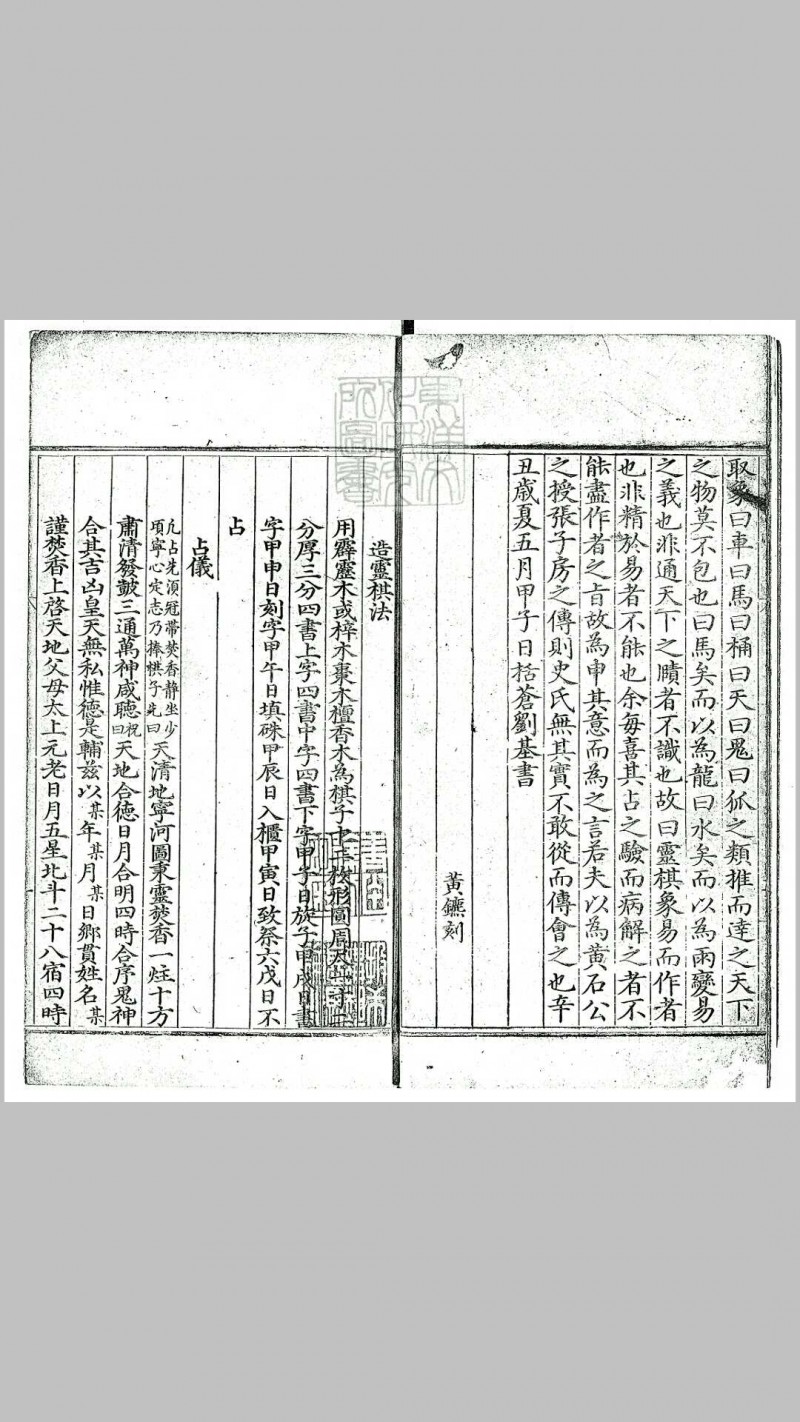 取象曰車曰馬曰桶曰天曰鬼曰狐之類推而達之天下
之物莫不包也曰馬矣而以為龍曰水矣而以為雨變易
之義也非通天下之賾者不識也故曰靈棋象易而作者
也非精於易者不能也余每喜其占之驗而病解之者不
能盡作者之旨故為申其意而為之言若夫以為黃石公
之授張子房之傳則史氏無其實不敢從而傳會之也辛
丑歳夏五月甲子日括蒼劉基書
黃鑣刻
造靈棋法
用霹靂木或梓木棗木檀香木為棋子十二枚形圓周尺一寸二
分厚三分四書上字四書中字四書下字甲子日旋子甲戌日書
字甲申日刻字甲午日填硃甲辰日入櫃甲寅日致祭六戊日不
占
占儀
凡占先須冠帶焚香静坐少
項寧心定志乃捧棋子先曰
天清地寧河圖秉靈焚香一炷十方
肅清發皷三通萬神咸聴祝曰天地合德日月合明四時合序鬼神
合其吉凶皇天無私惟德是輔兹以某年某月某日郷貫姓名某
謹焚香上啓天地父母太上元老日月五星北斗二十八宿四時
東洋文化研究所圖書